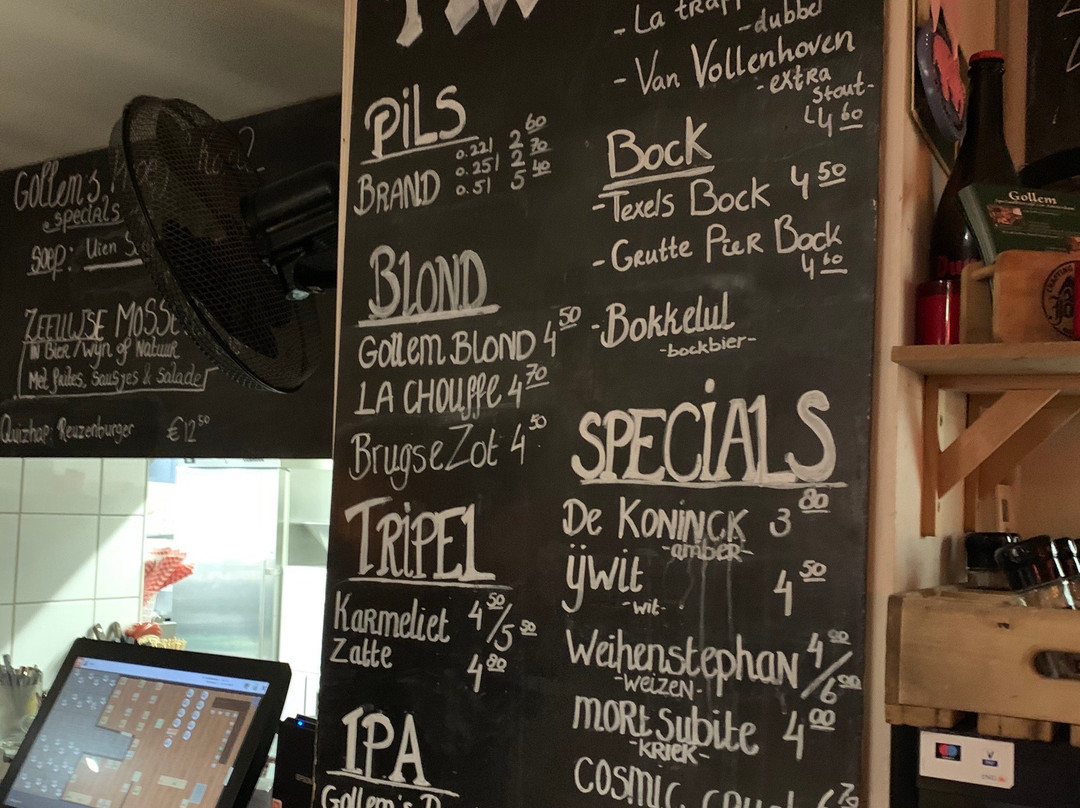 Gollem's
specials
soep: Uien
ZEEUWSE
in Bier/Wijn of Natuur
Met frites, sausjes & Salade
Quizhap: Reuzenburger €12 50
PiLS
BRAND 0.22l 2 60
0.25l 2 70
0.5l 5 40
BLOND
Gollem BLOND 4 50
LA CHOUFFE 4 70
Brugse Zot 4 50
TRiPEL
Karmeliet 4 50/5 50
Zatte 4 80
IPA
Gollem's
- La
- dubbel
- Van Vollenhoven
- extra
stout -
4 60
Bock
- Texels Bock 4 50
- Grutte Pier Bock
4 60
- Bokkelul
- bockbier -
SPECiALS
De KONINCK 3 80
- amber -
ijwit 4 50
- wit -
Weihenstephan 4 00/6 00
- WEIZEN -
MORt Subite 4 00
- KRIEK -
COSMIC 6 70
Gollem
ING